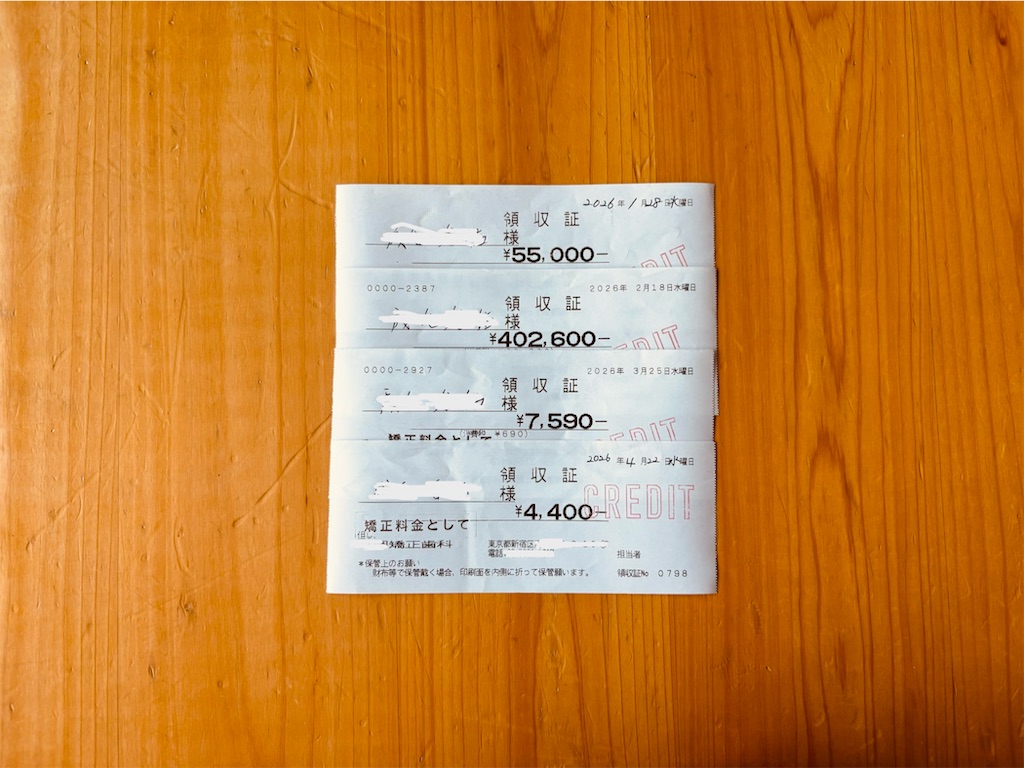 2026年1月28日水曜日
領収証
様
¥55,000-
0000-2387
2026年 2月18日水曜日
領収証
様
¥402,600-
0000-2927
2026年 3月25日水曜日
領収証
様
¥7,590-
(消費税 ¥690)
矯正料金として
2026年4月22日水曜日
領収証
様
¥4,400-
CREDIT
矯正料金として
但し
矯正歯科
東京都新宿区
電話
担当者
*保管上のお願い
財布等で保管戴く場合、印刷面を内側に折って保管願います。
領収証No 0798